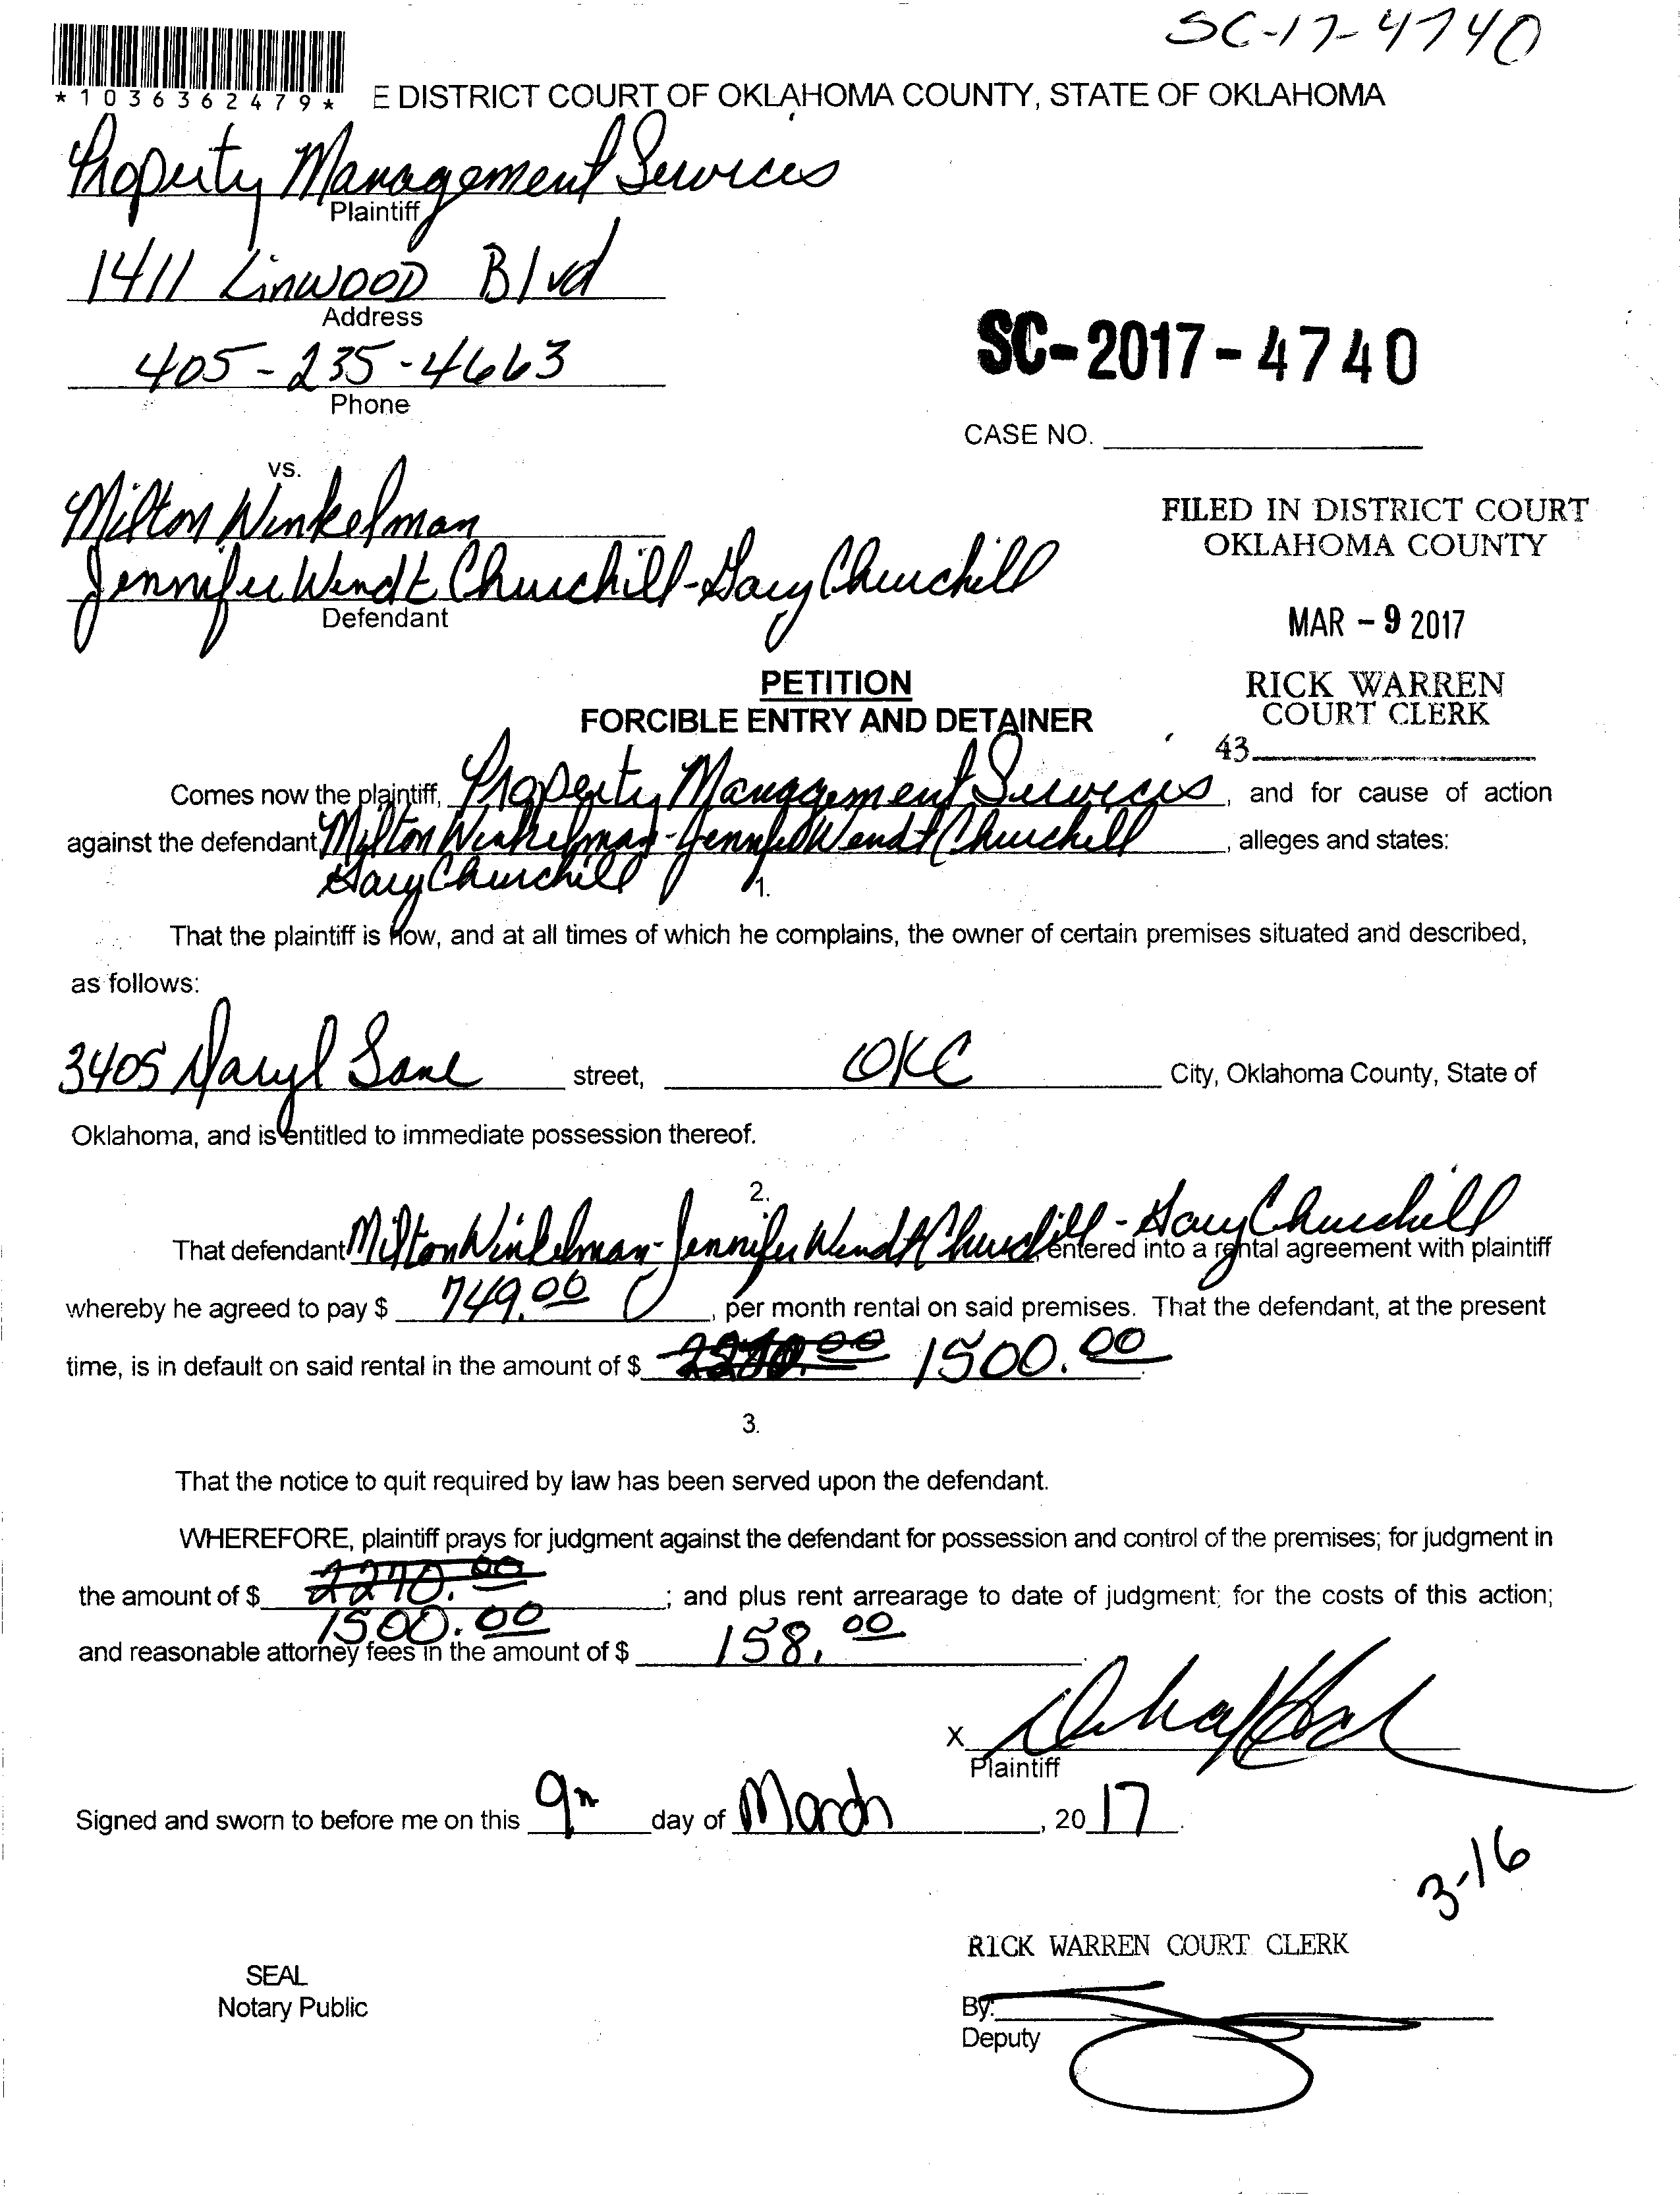 SC-17-4740
*1036362479*
E DISTRICT COURT OF OKLAHOMA COUNTY, STATE OF OKLAHOMA
Property Management Services
Plaintiff
1411 Linwood Blvd
Address
405-235-4663
Phone
SC-2017-4740
CASE NO.
vs.
Milton Winkelman
Jennifer Wendt Churchill-Gary Churchill
Defendant
FILED IN DISTRICT COURT
OKLAHOMA COUNTY
MAR - 9 2017
RICK WARREN
COURT CLERK
43
PETITION
FORCIBLE ENTRY AND DETAINER
Comes now the plaintiff, Property Management Services, and for cause of action
against the defendant Milton Winkelman-Jennifer Wendt Churchill, alleges and states:
Gary Churchill
1.
That the plaintiff is now, and at all times of which he complains, the owner of certain premises situated and described,
as follows:
3405 Daryl Lane street, OKC City, Oklahoma County, State of
Oklahoma, and is entitled to immediate possession thereof.
2.
That defendant Milton Winkelman-Jennifer Wendt Churchill-Gary Churchill entered into a rental agreement with plaintiff
whereby he agreed to pay $ 749.00, per month rental on said premises. That the defendant, at the present
time, is in default on said rental in the amount of $ 1500.00.
3.
That the notice to quit required by law has been served upon the defendant.
WHEREFORE, plaintiff prays for judgment against the defendant for possession and control of the premises; for judgment in
the amount of $ 2270.00; and plus rent arrearage to date of judgment; for the costs of this action;
1500.00
and reasonable attorney fees in the amount of $ 158.00.
X
Plaintiff
Signed and sworn to before me on this 9th day of March, 20 17.
3-16
RICK WARREN COURT CLERK
SEAL
Notary Public
By:
Deputy